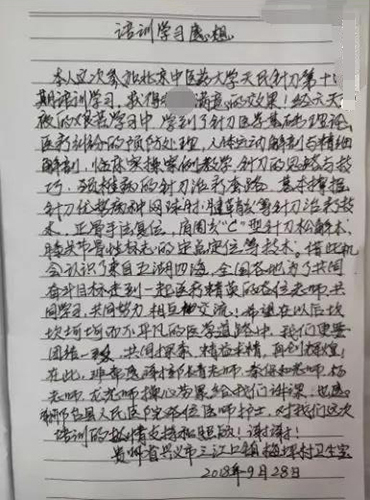 培训学习感想
本人这次参加北京中医药大学天民针刀第十
期培训学习,取得满意的效果!经六天
夜的艰苦学习中,学到了针刀医学基础理论,
医疗纠纷的预防处理,人体运动解剖与精细
解剖,临床实操案例教学,针刀的思路与技
巧,颈椎病的针刀治疗套路,基本掌握
针刀优势病种网球肘,腱鞘炎等针刀治疗技
术,正骨手法复位,肩周炎"C"型针刀松解术,
膝关节骨性标志的定点定位等技术。借此机
会认识了来自五湖四海,全国各地为了共同
奋斗目标走到一起医疗精英的各位老师,共
同学习,共同努力,相互交流!希望在以后坎
坎坷坷而不平凡的医学道路中,我们更要
团结一致,共同探索,精益求精,再创辉煌!
在此,非常感谢老师,秦保和老师,杨
老师,龙老师操心劳累给我们讲课,也感
谢县人民医院各位医师护士,对我们这次
培训的热情支持和照顾!谢谢!
贵州省兴义市三江口镇梅坪村卫生室
2018年9月28日